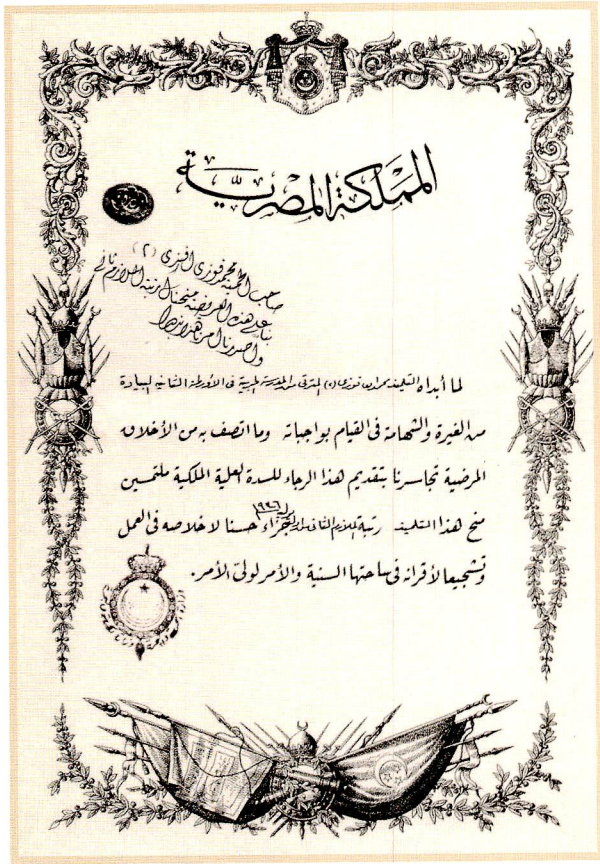 المملكة المصرية
صاحب الحمية محمد فوزي افندي (٢)
بناء على هذه العريضة منحناك رتبة الملازم ثاني
واصدرنا امرنا هذا بذلك
لما أبداه التلميذ فوزي (٢) المترقي من المدرسة الحربية في الأورطة الثانية البيادة
من الغيرة والشهامة في القيام بواجباته وما اتصف به من الأخلاق
المرضية تجاسرنا بتقديم هذا الرجاء للسدة العلية الملكية ملتمسين
منح هذا التلميذ رتبة الملازم الثاني جزاء حسنا لاخلاصه في العمل
وتشجيعا لأقرانه في ساحتها السنية والأمر لولي الأمر.